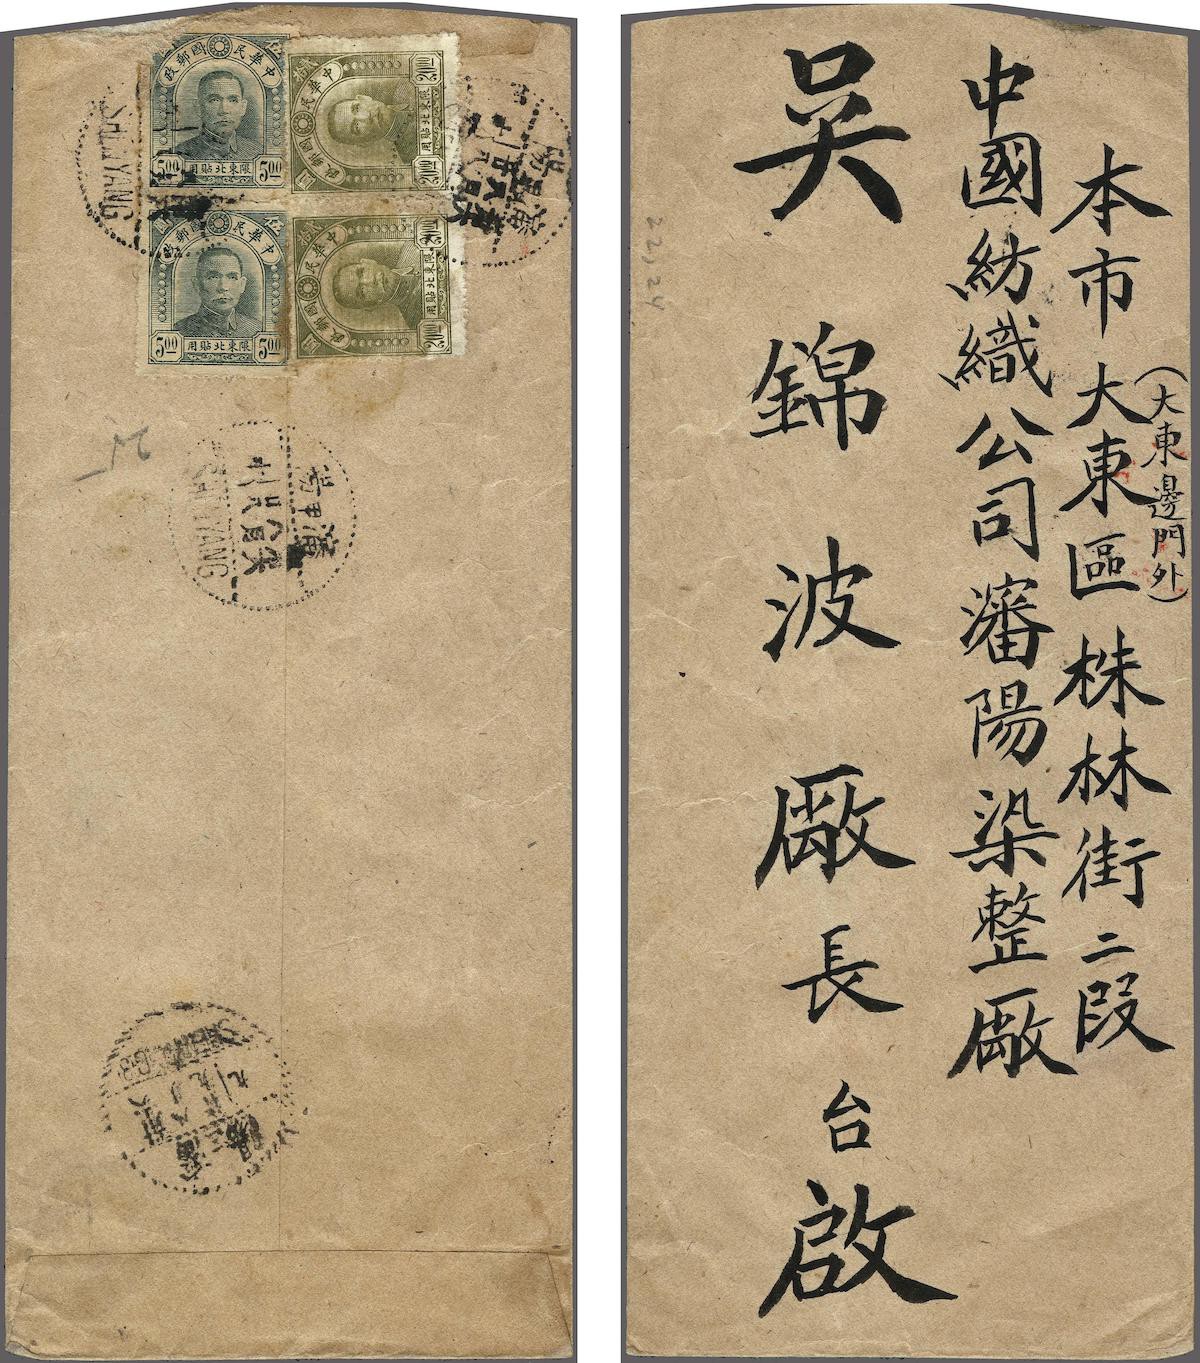 本市大東區株林街二段
(大東邊門外)
中國紡織公司瀋陽染整廠
吳錦波廠長台啟
22,24
中華民國郵政
限東北貼用
5.00
5.00
中華民國郵政
限東北貼用
20.00
20.00
中華民國郵政
限東北貼用
5.00
5.00
中華民國郵政
限東北貼用
20.00
20.00
SHENYANG
SHENYANG